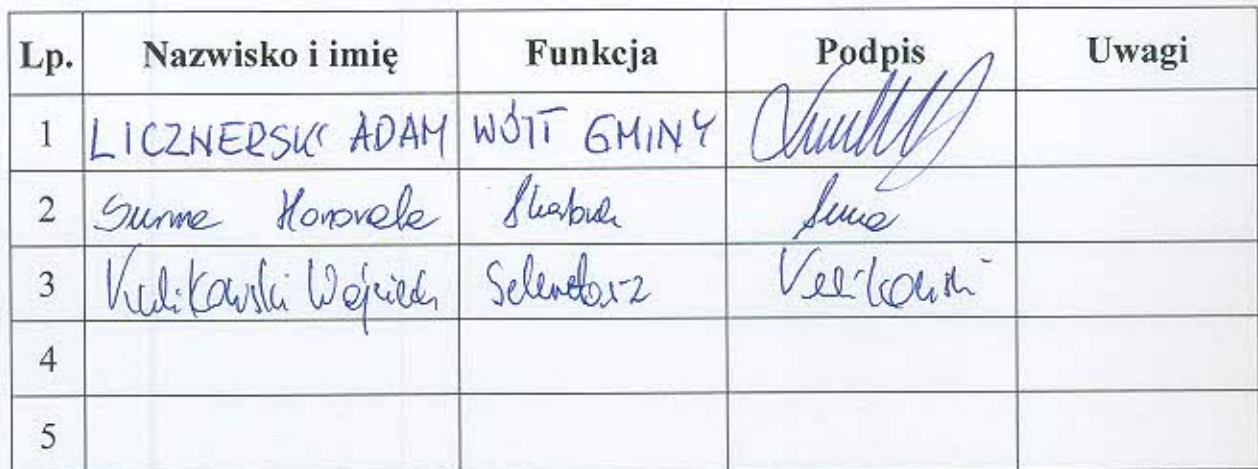 Lp. Nazwisko i imię Funkcja Podpis Uwagi
1 LICZNERSKI ADAM WÓJT GMINY
2 Surma Honorata Skarbnik
3 Kulikowski Wojciech Sekretarz Kulikowski
4
5